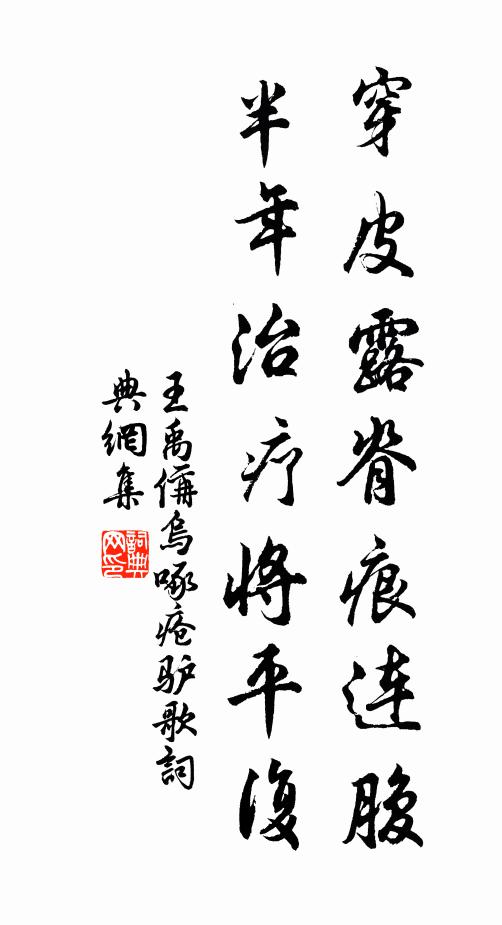 穿皮露脊痕连腹
半年治疗将平复
王禹偁乌啄疮驴歌詞
典網集
詞典网印